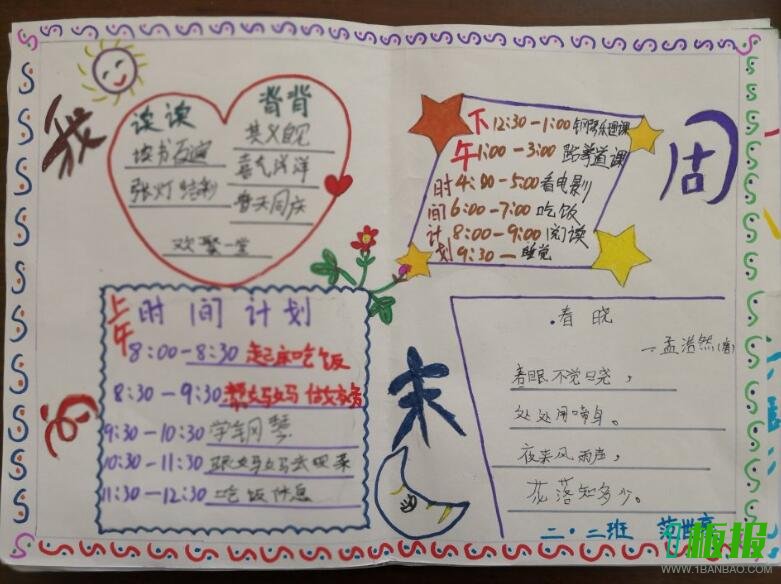 我
的
周
末
读读 背背
张灯结彩
喜气洋洋
普天同庆
欢聚一堂
上午
时间计划
8:00-8:30 起床吃饭
8:30-9:30 帮妈妈做家务
9:30-10:30 学钢琴
10:30-11:30 跟妈妈去
11:30-12:30 吃饭休息
下午时间计划
12:30-1:00
1:00-3:00 跆拳道课
4:00-5:00 看电影
6:00-7:00 吃饭
8:00-9:00 阅读
9:30— 睡觉
春晓
—孟浩然(唐)
春眠不觉晓,
处处闻啼鸟。
夜来风雨声,
花落知多少。
二·二班
梅报
WWW.1BANBAO.COM